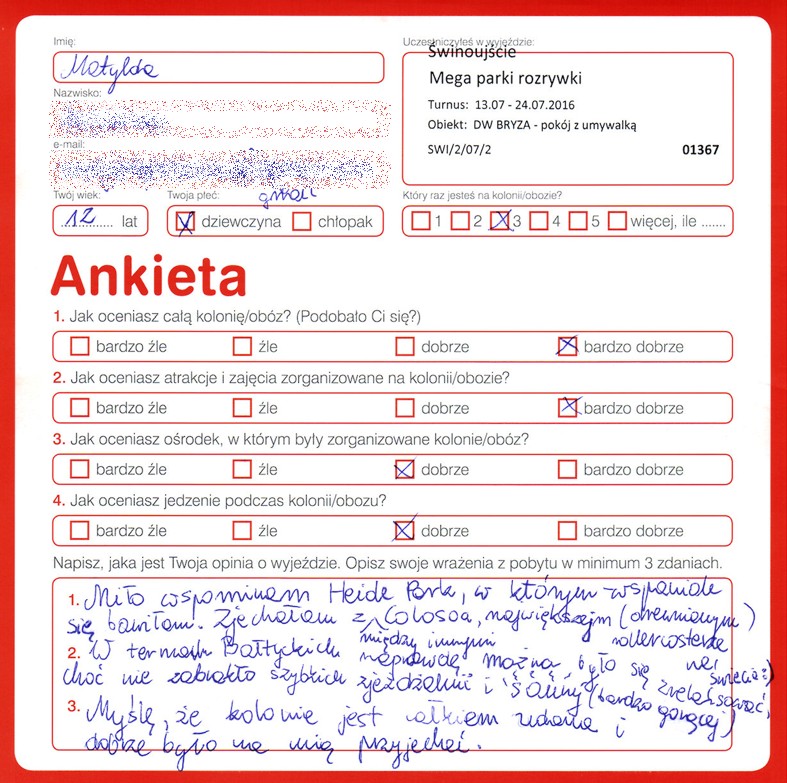 Imię:
Matylda
Uczestniczyłeś w wyjeździe:
Świnoujście
Mega parki rozrywki
Turnus: 13.07 - 24.07.2016
Obiekt: DW BRYZA - pokój z umywalką
SWI/2/07/2 01367
Nazwisko:
e-mail:
Twój wiek:
12 lat
Twoja płeć:
dziewczyna chłopak
Który raz jesteś na kolonii/obozie?
1 2 3 4 5 więcej, ile .......
Ankieta
1. Jak oceniasz całą kolonię/obóz? (Podobało Ci się?)
bardzo źle źle dobrze bardzo dobrze
2. Jak oceniasz atrakcje i zajęcia zorganizowane na kolonii/obozie?
bardzo źle źle dobrze bardzo dobrze
3. Jak oceniasz ośrodek, w którym były zorganizowane kolonie/obóz?
bardzo źle źle dobrze bardzo dobrze
4. Jak oceniasz jedzenie podczas kolonii/obozu?
bardzo źle źle dobrze bardzo dobrze
Napisz, jaka jest Twoja opinia o wyjeździe. Opisz swoje wrażenia z pobytu w minimum 3 zdaniach.
1. Miło wspominam Heide Park, w którym wspaniale
się bawiłam. Zjechałam z Colosoa, największym (drewnianym)
między innymi rollercosterze na świecie :)
2. W termach Bałtyckich naprawdę można było się zrelaksować,
choć nie zabrakło szybkich zjeżdżalni i sauny (bardzo gorącej)
3. Myślę, że kolonie jest całkiem udana i
dobrze było na nią przyjechać.